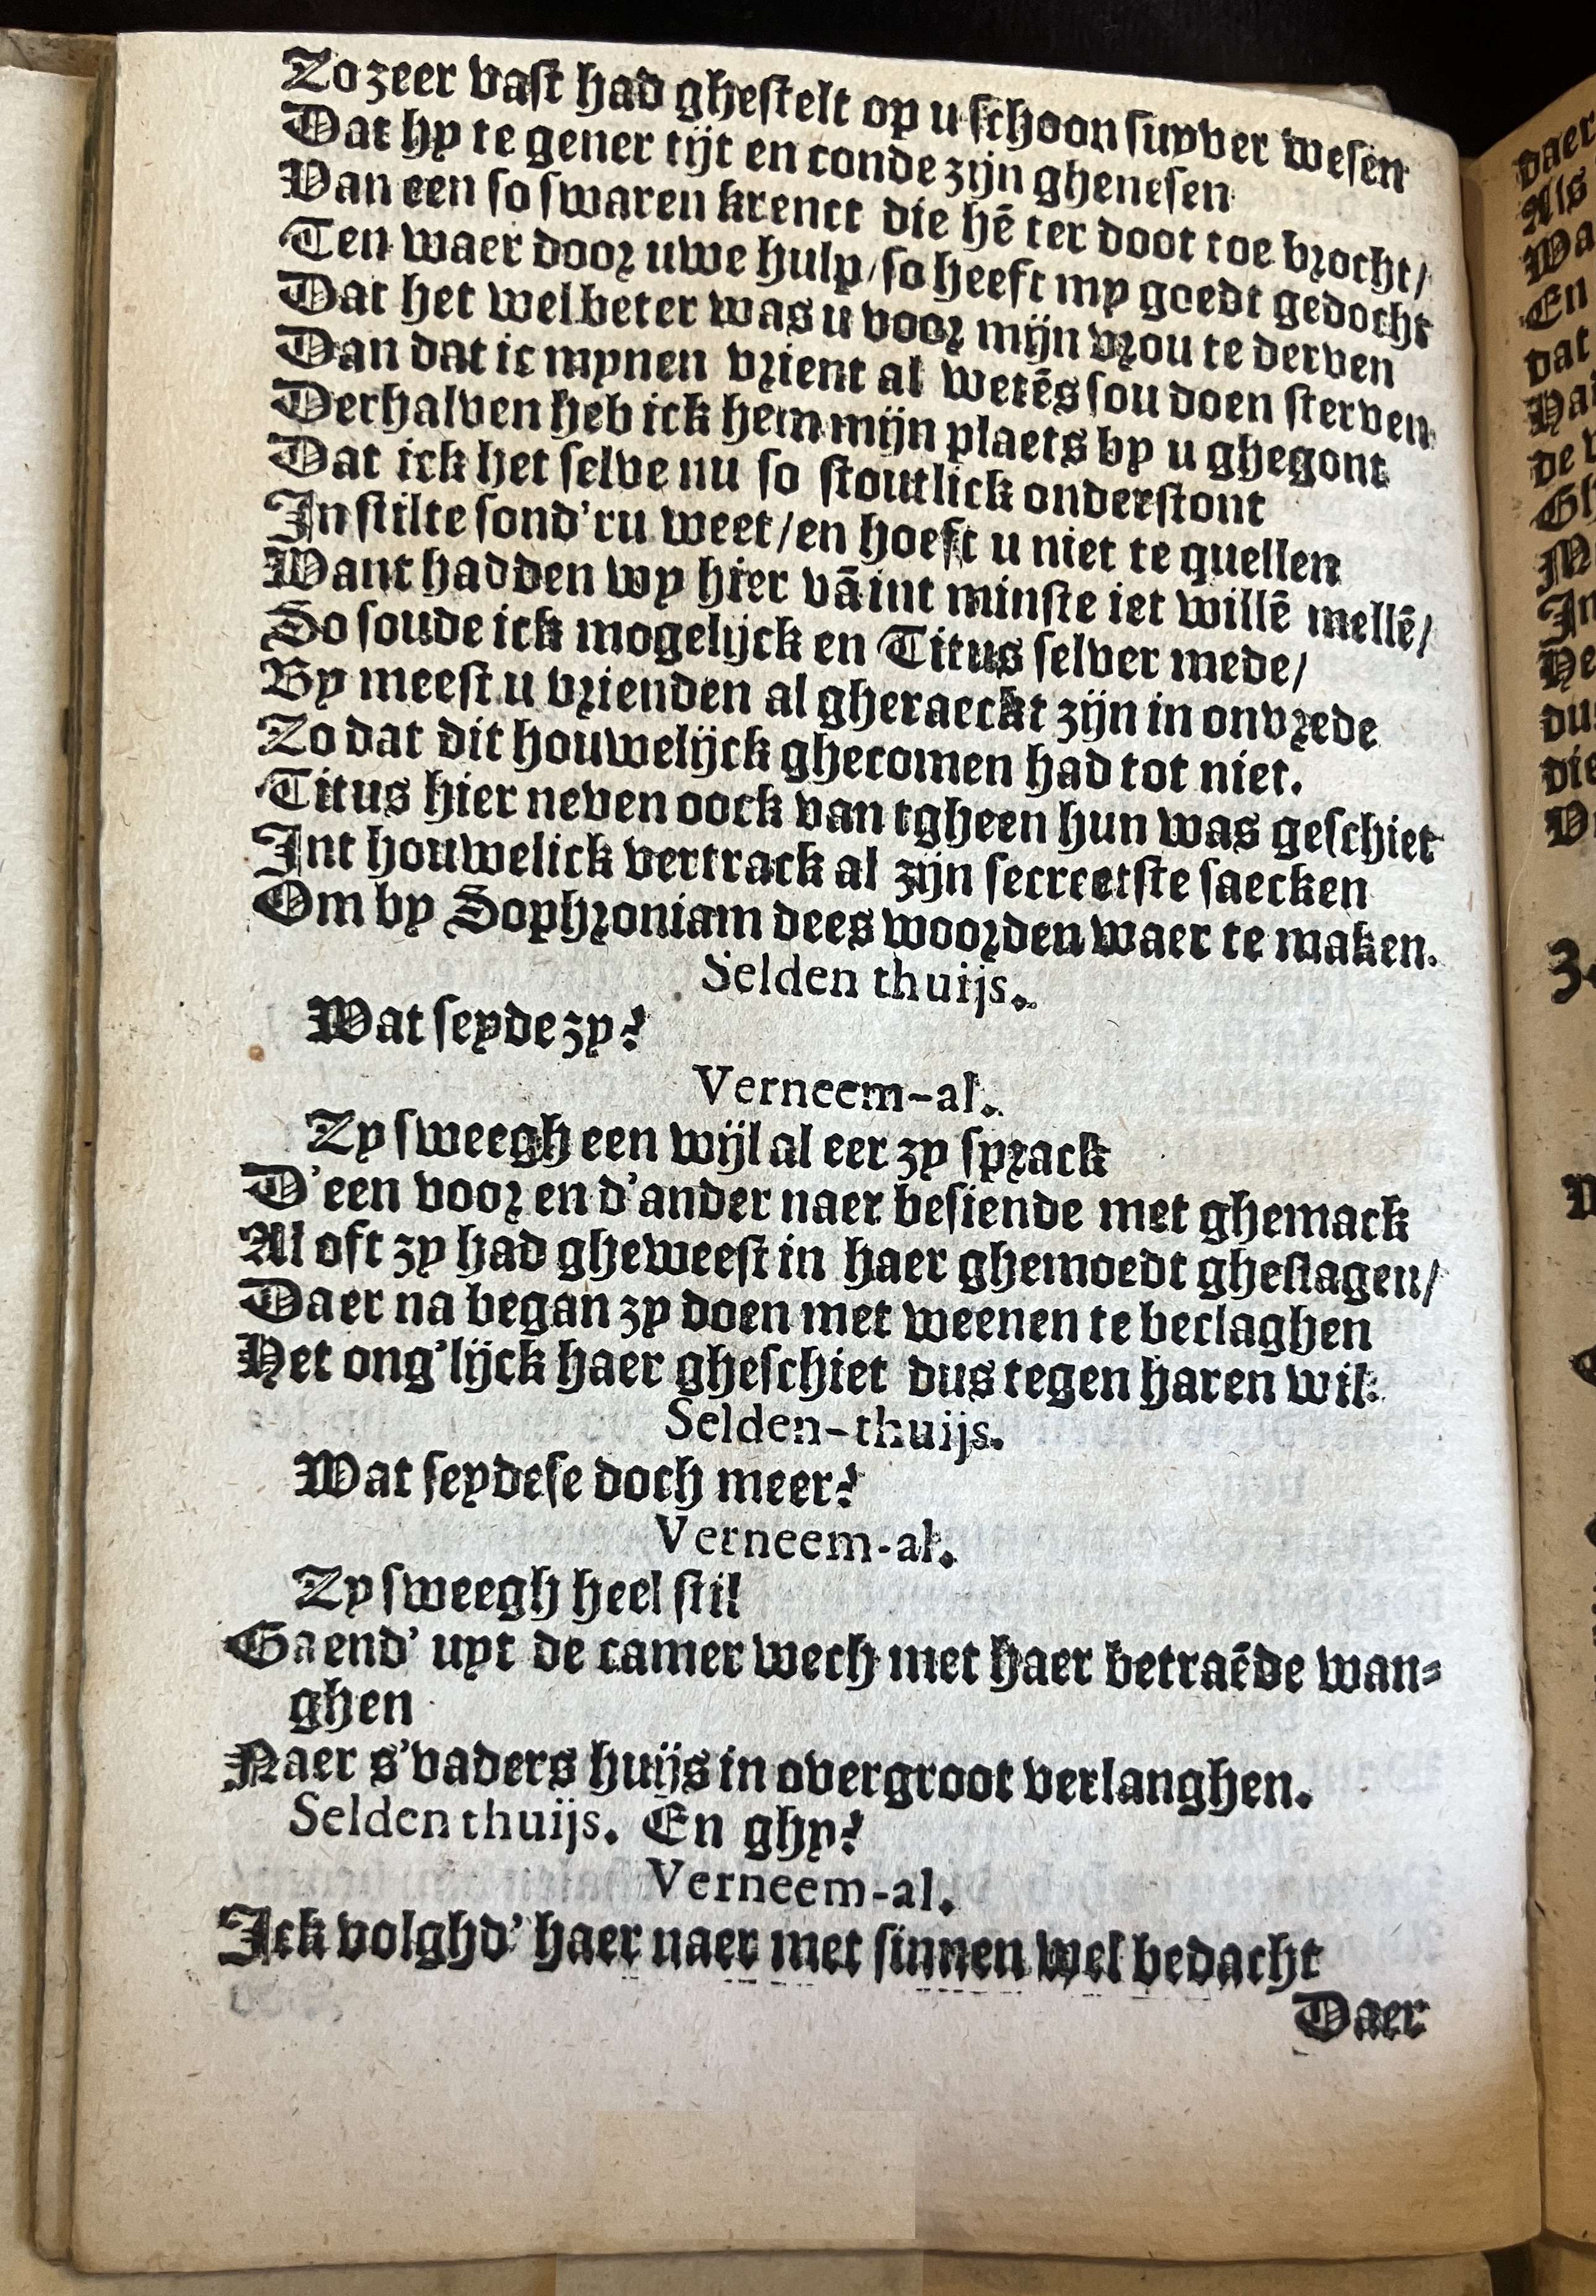 Zo zeer vast had ghestelt op u schoon suyver wesen
Dat hy te gener tijt en conde zijn ghenesen
Van een so swaren krenct die hē ter doot toe brocht/
Ten waer door uwe hulp/so heeft my goedt gedocht
Dat het wel beter was u voor mijn vrou te derven
Dan dat ic mynen vrient al wetēs sou doen sterven
Derhalven heb ick hem mijn plaets by u ghegont
Dat ick het selve nu so stoutlick onderstont
In stilte sond'ru weet/en hoeft u niet te quellen
Want hadden wy hier vā int minste iet willē mellē/
So soude ick mogelijck en Titus selver mede/
By meest u vrienden al gheraeckt zijn in onvrede
Zo dat dit houwelijck ghecomen had tot niet.
Titus hier neven oock van tgheen hun was geschiet
Int houwelick vertrack al zijn secreetste saecken
Om by Sophroniam dees woorden waer te maken.
Selden thuijs.
Wat seyde zy?
Verneem-al.
Zy sweegh een wijl al eer zy sprack
D'een voor en d'ander naer besiende met ghemack
Al oft zy had gheweest in haer ghemoedt gheslagen/
Daer na began zy doen met weenen te beclaghen
Het ong'lijck haer gheschiet dus tegen haren wil.
Selden-thuijs.
Wat seydese doch meer?
Verneem-al.
Zy sweegh heel stil
Gaend' uyt de camer wech met haer betraēde wan-
ghen
Naer s'vaders huijs in overgroot verlanghen.
Selden thuijs. En ghy?
Verneem-al.
Ick volghd' haer naer met sinnen wel bedacht
Daer
daer
Als
Wa
En
dat
Ha
de
Gh
In
He
dus
die